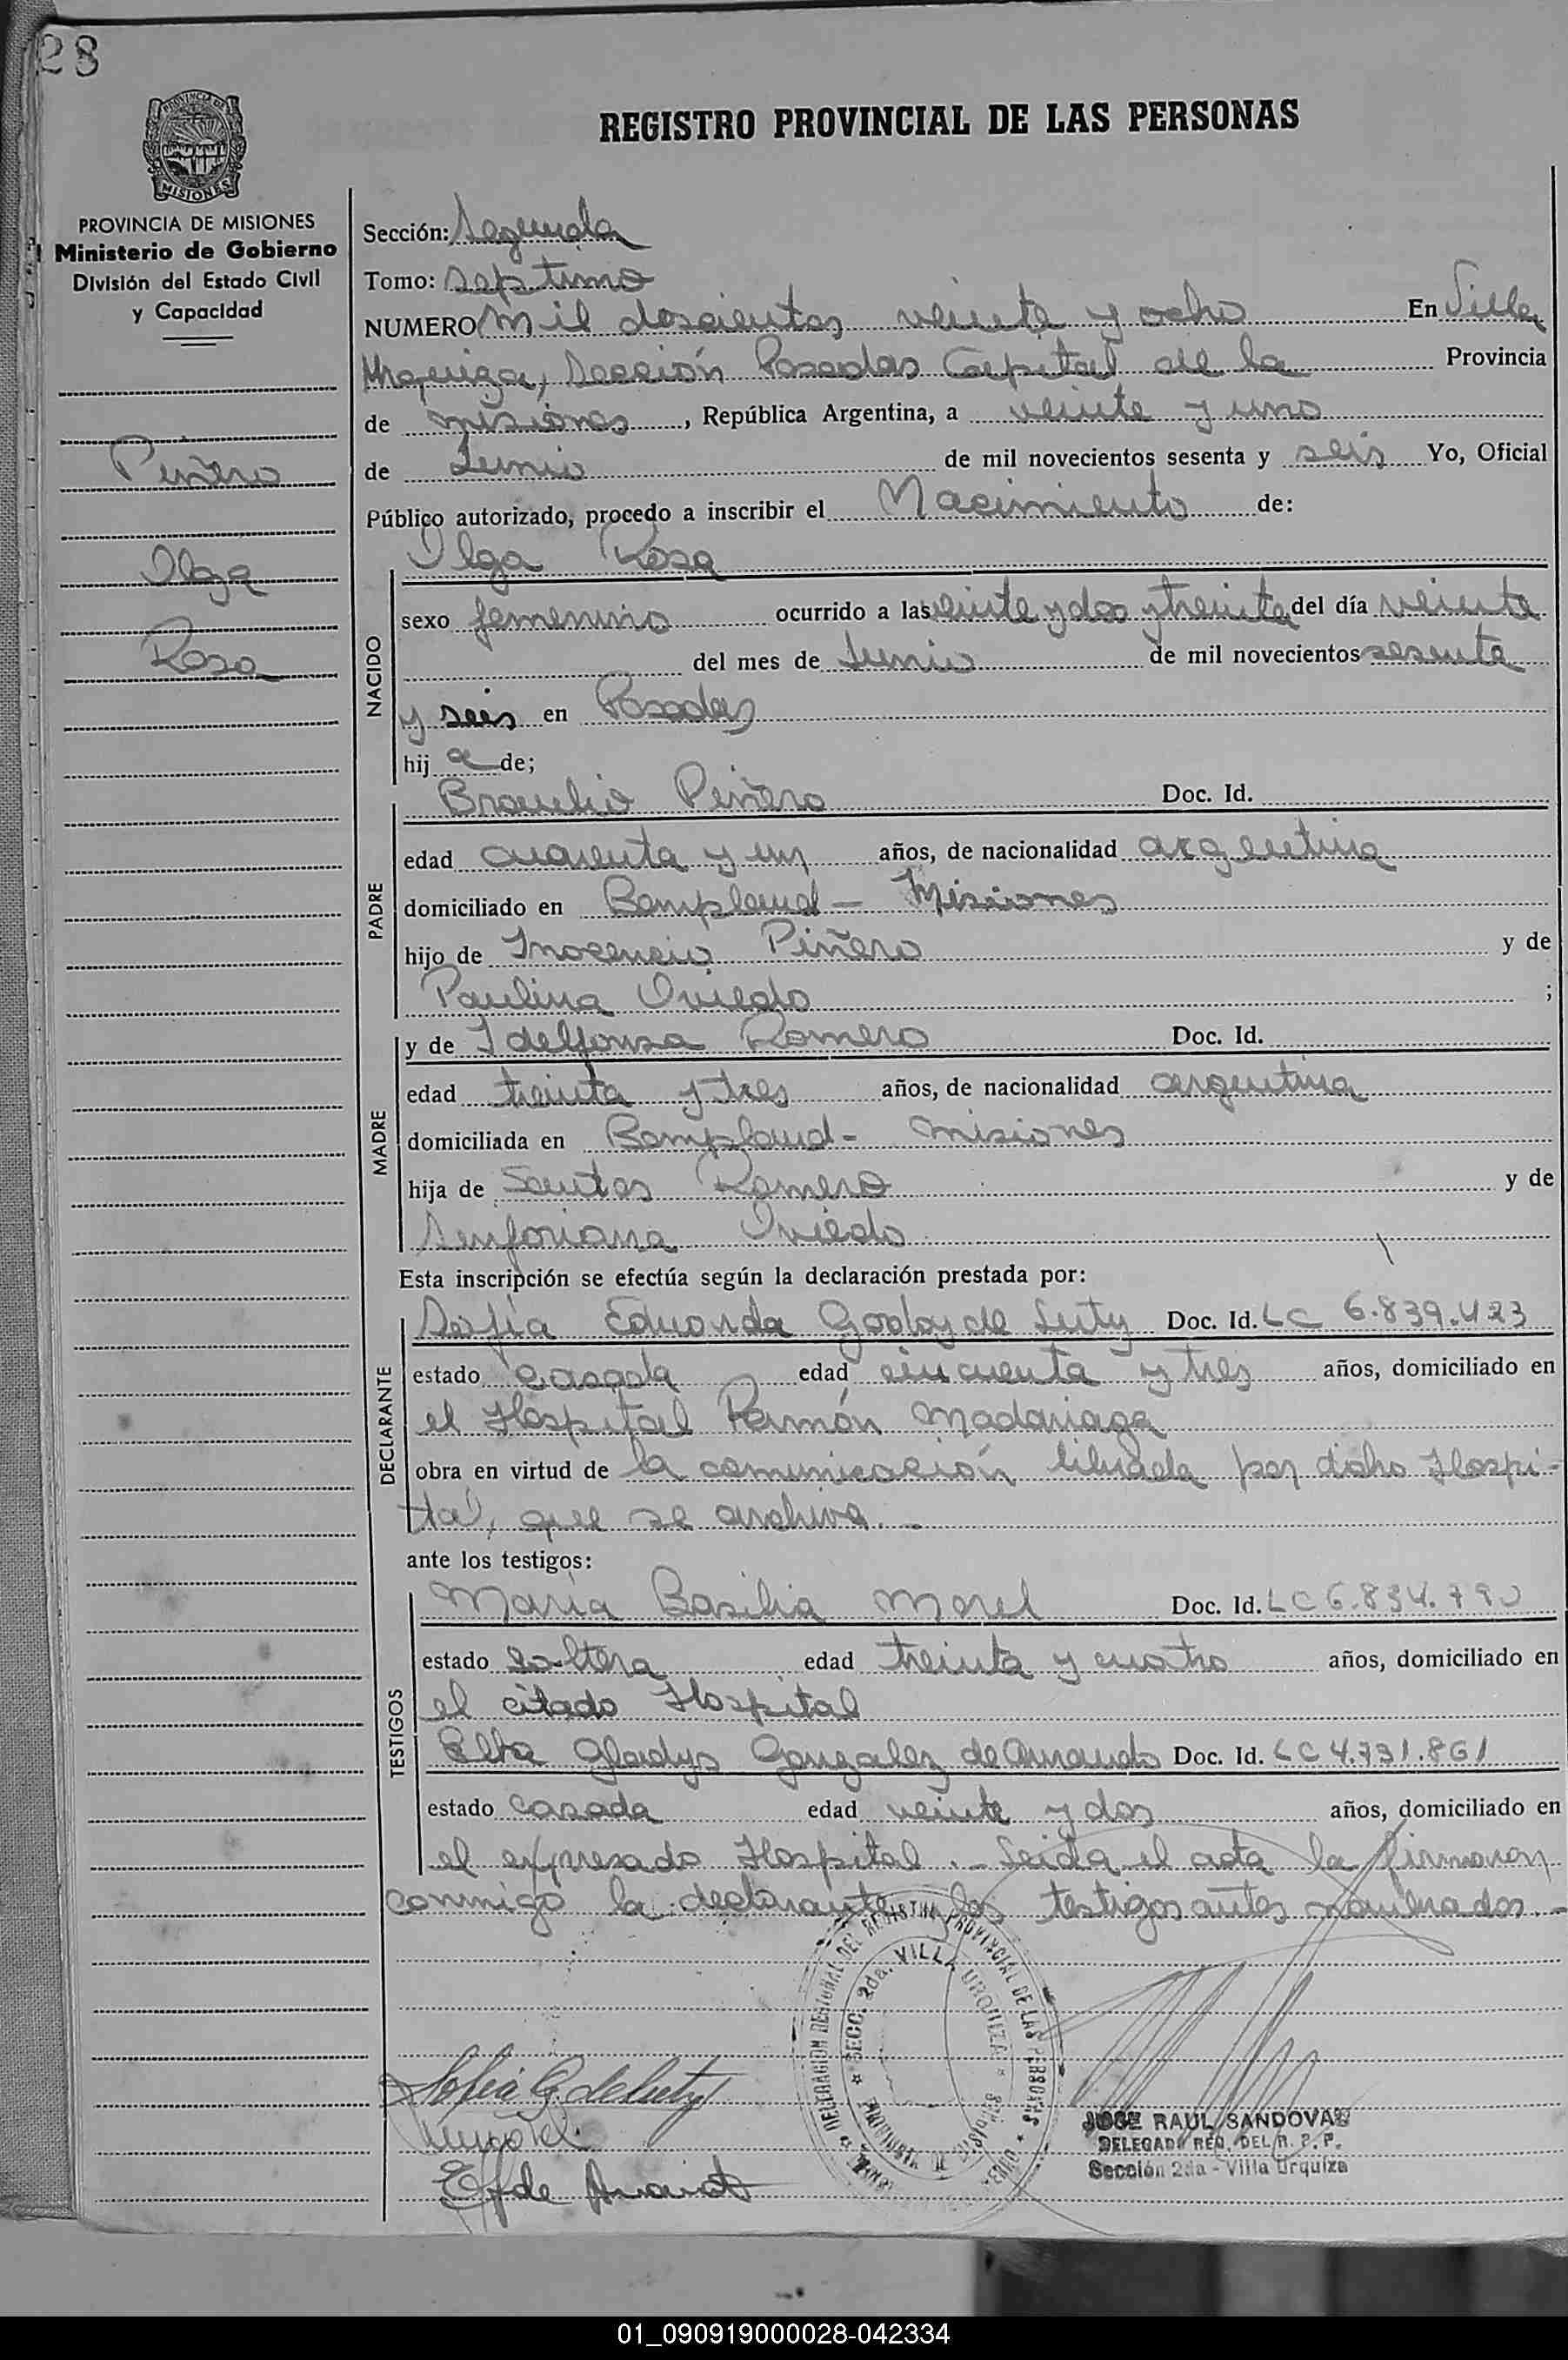 28
PROVINCIA DE
MISIONES
REGISTRO PROVINCIAL DE LAS PERSONAS
PROVINCIA DE MISIONES
Ministerio de Gobierno
División del Estado Civil
y Capacidad
Piñero
Olga
Rosa
Sección: Segunda
Tomo: septimo
NUMERO mil doscientos veinte y ocho En Villa
Urquiza, Sección Posadas Capital de la Provincia
de misiones, República Argentina, a veinte y uno
de Junio de mil novecientos sesenta y seis Yo, Oficial
Público autorizado, procedo a inscribir el Nacimiento de:
NACIDO
Olga Rosa
sexo femenino ocurrido a las veinte y dos y treinta del día veinte
del mes de Junio de mil novecientos sesenta
y seis en Posadas
hij a de;
PADRE
Braulio Piñero Doc. Id.
edad cuarenta y un años, de nacionalidad argentina
domiciliado en Bompland - Misiones
hijo de Inocencio Piñero y de
Paulina Oviedo ;
MADRE
y de Idelfonsa Romero Doc. Id.
edad treinta y tres años, de nacionalidad argentina
domiciliada en Bompland - misiones
hija de Santos Romero y de
Sinforiana Oviedo
Esta inscripción se efectúa según la declaración prestada por:
DECLARANTE
Sofía Eduarda Godoy de Luty Doc. Id. LC 6.839.423
estado casada edad cincuenta y tres años, domiciliado en
el Hospital Ramón Madariaga
obra en virtud de la comunicación librada por dicho Hospi-
tal, que se archiva. -
ante los testigos:
TESTIGOS
María Basilia Morel Doc. Id. LC 6.834.790
estado soltera edad treinta y cuatro años, domiciliado en
el citado Hospital
Elba Gladys Gonzalez de Doc. Id. LC 4.731.861
estado casada edad veinte y dos años, domiciliado en
el expresado Hospital. - Leida el acta la firmaron
conmigo la declarante y los testigos antes nombrados. -
DELEGACION REGIONAL DEL REGISTRO PROVINCIAL DE LAS PERSONAS
SECC. 2da. VILLA URQUIZA
Sofia G. de Luty
JOSE RAUL SANDOVAL
DELEGADO REG. DEL R. P. P.
Sección 2da - Villa Urquiza
01_090919000028-042334